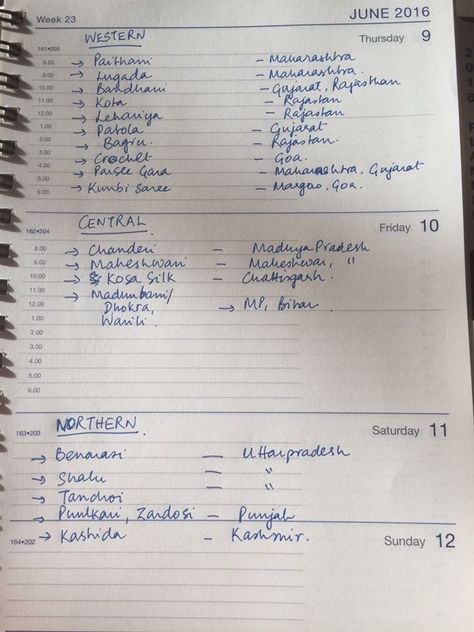 Week 23 JUNE 2016
WESTERN Thursday 9
161•205
8.00 → Paithani – Maharashtra
9.00 → Lugada – Maharashtra.
10.00 → Bandhani – Gujarat, Rajasthan
11.00 → Kota – Rajastan
12.00 → Lehariya – Rajastan
1.00 → Patola – Gujarat
2.00 Bagru. – Rajastan.
3.00 → Crochet – Goa.
4.00 → Parsee Gara – Maharashtra, Gujarat
5.00 → Kunbi Saree – Margao, Goa.
6.00
162•204 CENTRAL Friday 10
8.00 → Chanderi – Madhya Pradesh
9.00 → Maheshwari – Maheshwar, "
10.00 → Kosa Silk – Chattisgarh.
11.00 → Madhubani/
12.00 Dhokra, → MP, Bihar
1.00 Warili.
2.00
3.00
4.00
5.00
6.00
163•203 NORTHERN Saturday 11
→ Benarasi – Uttarpradesh
→ Shalu – "
→ Tanchoi – "
→ Phulkari, Zardosi – Punjab
164•202 → Kashida – Kashmir. Sunday 12